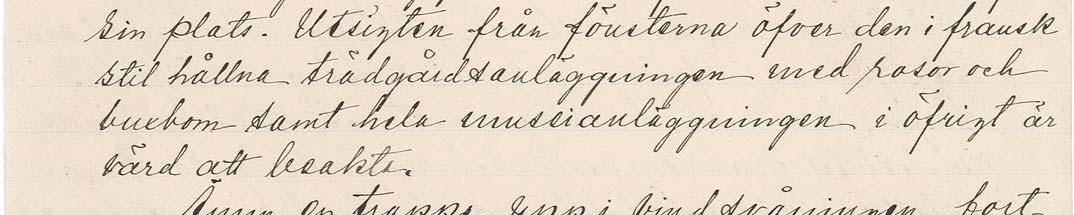 sin plats. Utsigten från fönsterna öfver den i fransk
stil hållna trädgårdsanläggningen med rosor och
buxbom samt hela museianläggningen i öfrigt är
värd att beakta.
Ännu en trappa upp i vindsvåningen fort-